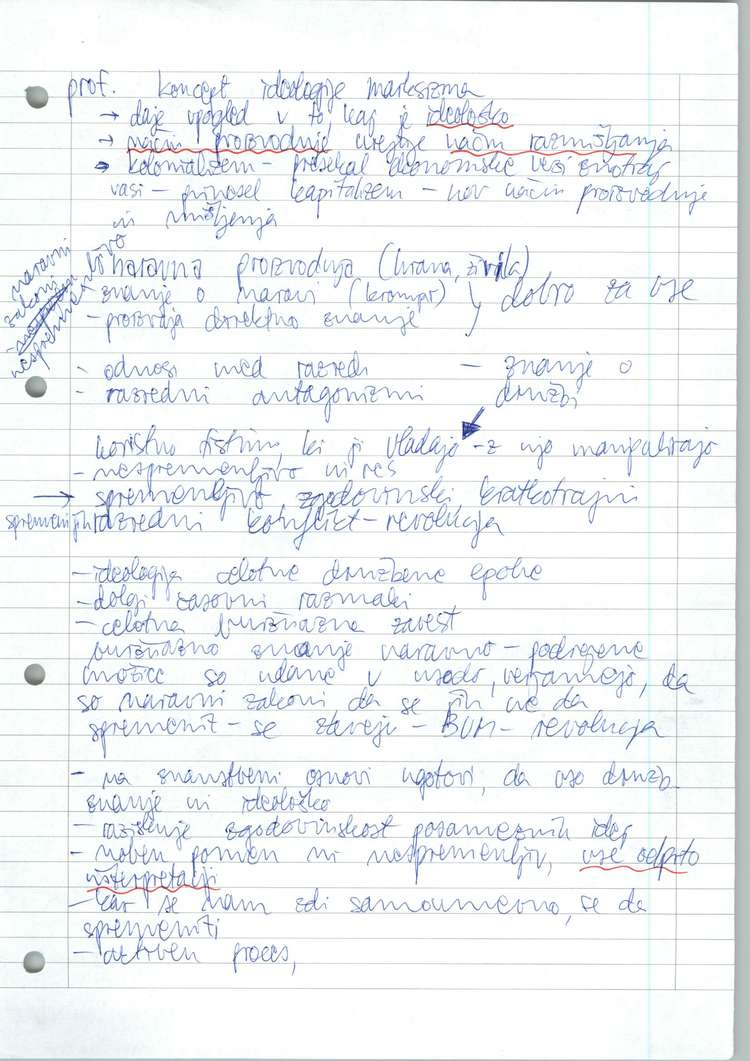 prof. koncept ideologije marksizma
→ daje vpogled v to kaj je ideološko
→ način proizvodnje ureja način razmišljanja
→ kolonializem – presekal ekonomske vezi znotraj
vasi – prinesel kapitalizem – nov način proizvodnje
in mišljenja
naravna proizvodnja (hrana, živila)
naravni
zakoni
nespremenljivo
– znanje o naravi (krompir)
– proizvaja direktno znanje
dobro za vse
– odnosi med razredi – znanje o
– razredni antagonizmi družbi
koristno tistim, ki ji vladajo – z njo manipulirajo
– nespremenljivo ni res
→ spremenljivo zgodovinski kratkotrajni
razredni konflikt – revolucija
– ideologija celotne družbene epohe
– dolgi časovni razmaki
– celotna buržoazna zavest
buržoazno znanje naravno – podrejene
množice so vdane v usodo, verjamejo, da
so naravni zakoni, da se jih ne da
spremenit – se zavejo – BUM – revolucija
– na znanstveni osnovi ugotovi, da vso družb.
znanje ni ideološko
– raziskuje zgodovinskost posameznih idej
– noben pomen ni nespremenljiv, vse odprto
interpretaciji
– kar se nam zdi samoumevno, se da
spremeniti
– aktiven proces,